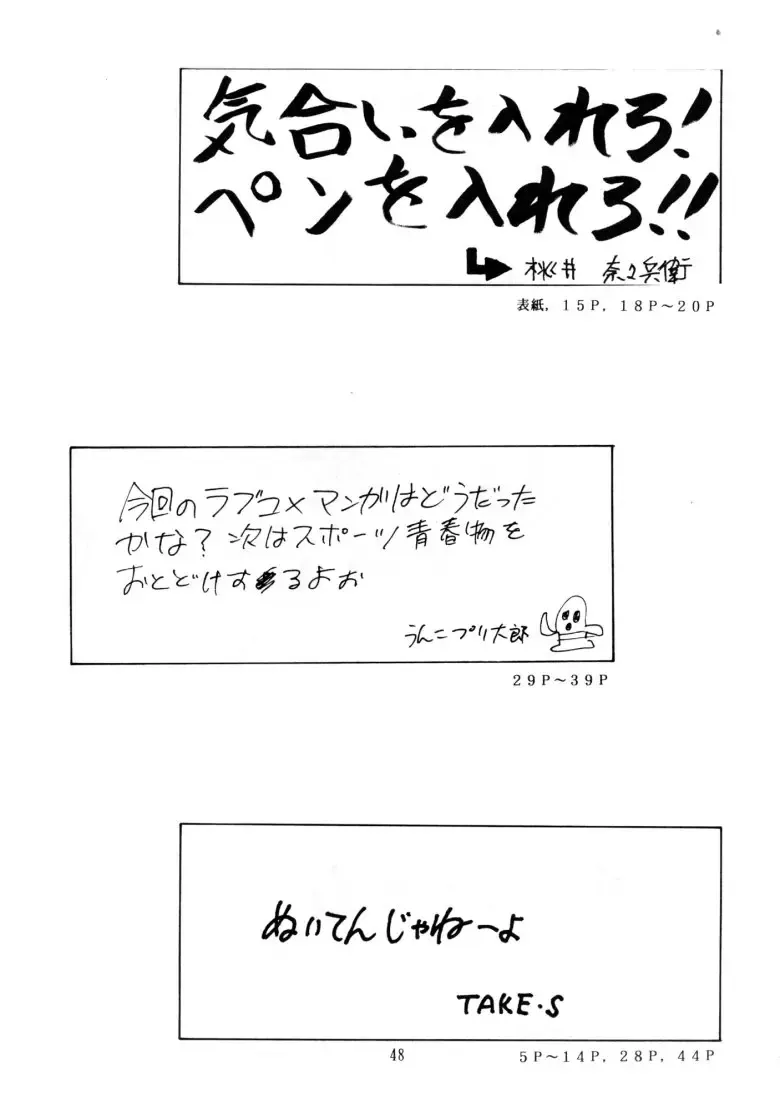 気合いを入れろ!
ペンを入れろ!!
桃井 奈々兵衛
表紙, 15P, 18P~20P
今回のラブコメマンガはどうだった
かな? 次はスポーツ青春物を
おとどけするよお
うんこプリ太郎
29P~39P
ぬいてんじゃねーよ
TAKE・S
48
5P~14P, 28P, 44P